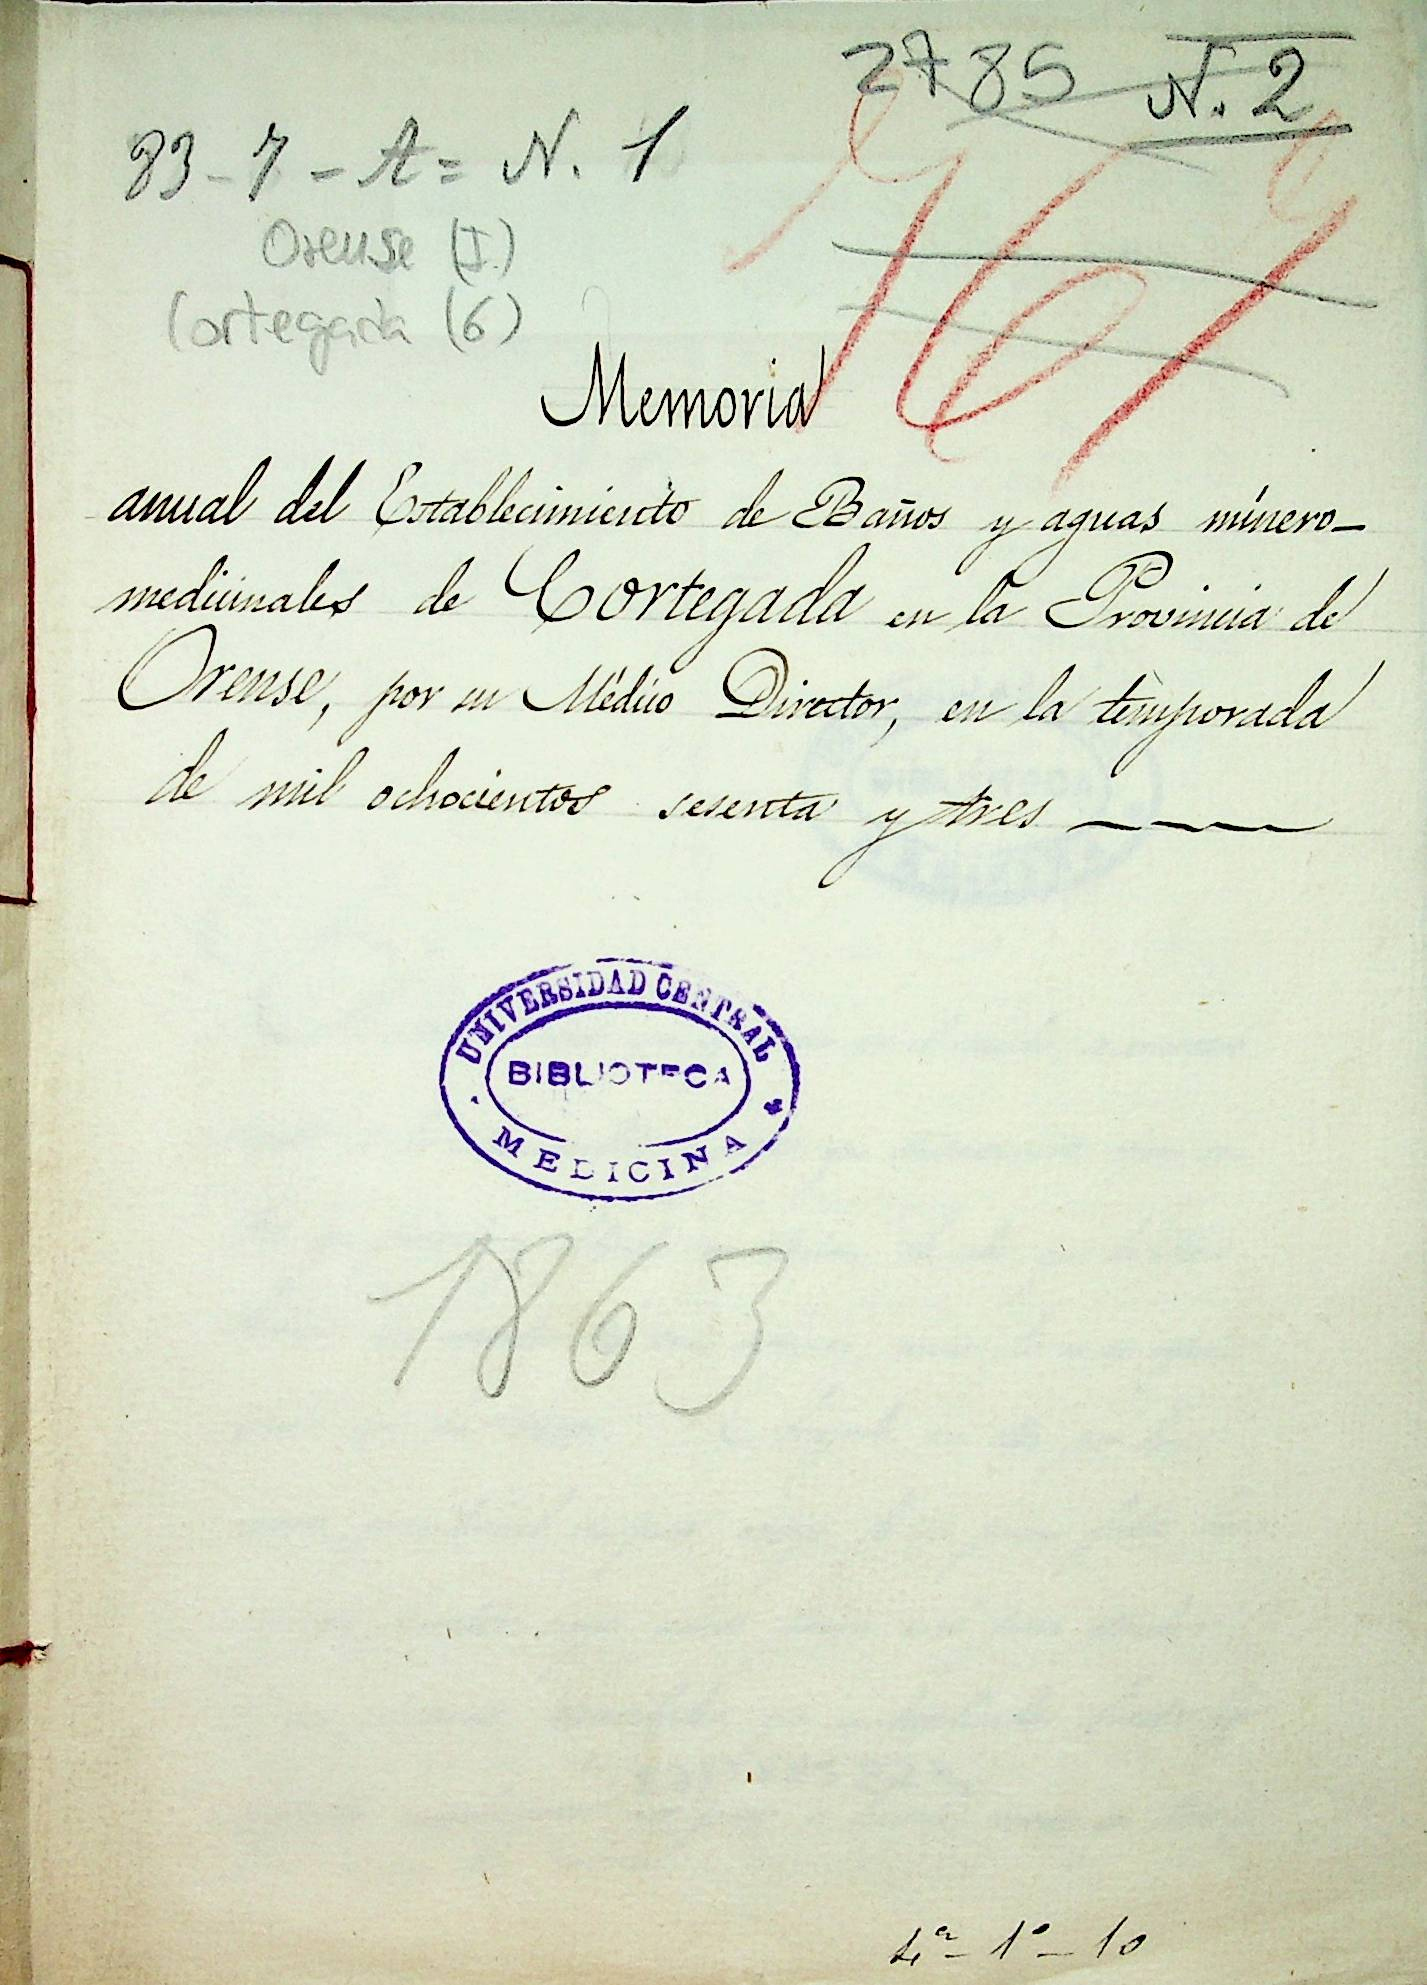 2785 N. 2
83-7-A= N. 1
Orense (I)
Cortegada (6)
Memoria
anual del Establecimiento de Baños y aguas minero-
medicinales de Cortegada en la Provincia de
Orense, por su Médico Director, en la temporada
de mil ochocientos sesenta y tres
UNIVERSIDAD CENTRAL
BIBLIOTECA
MEDICINA
1863
4ª-1º-10